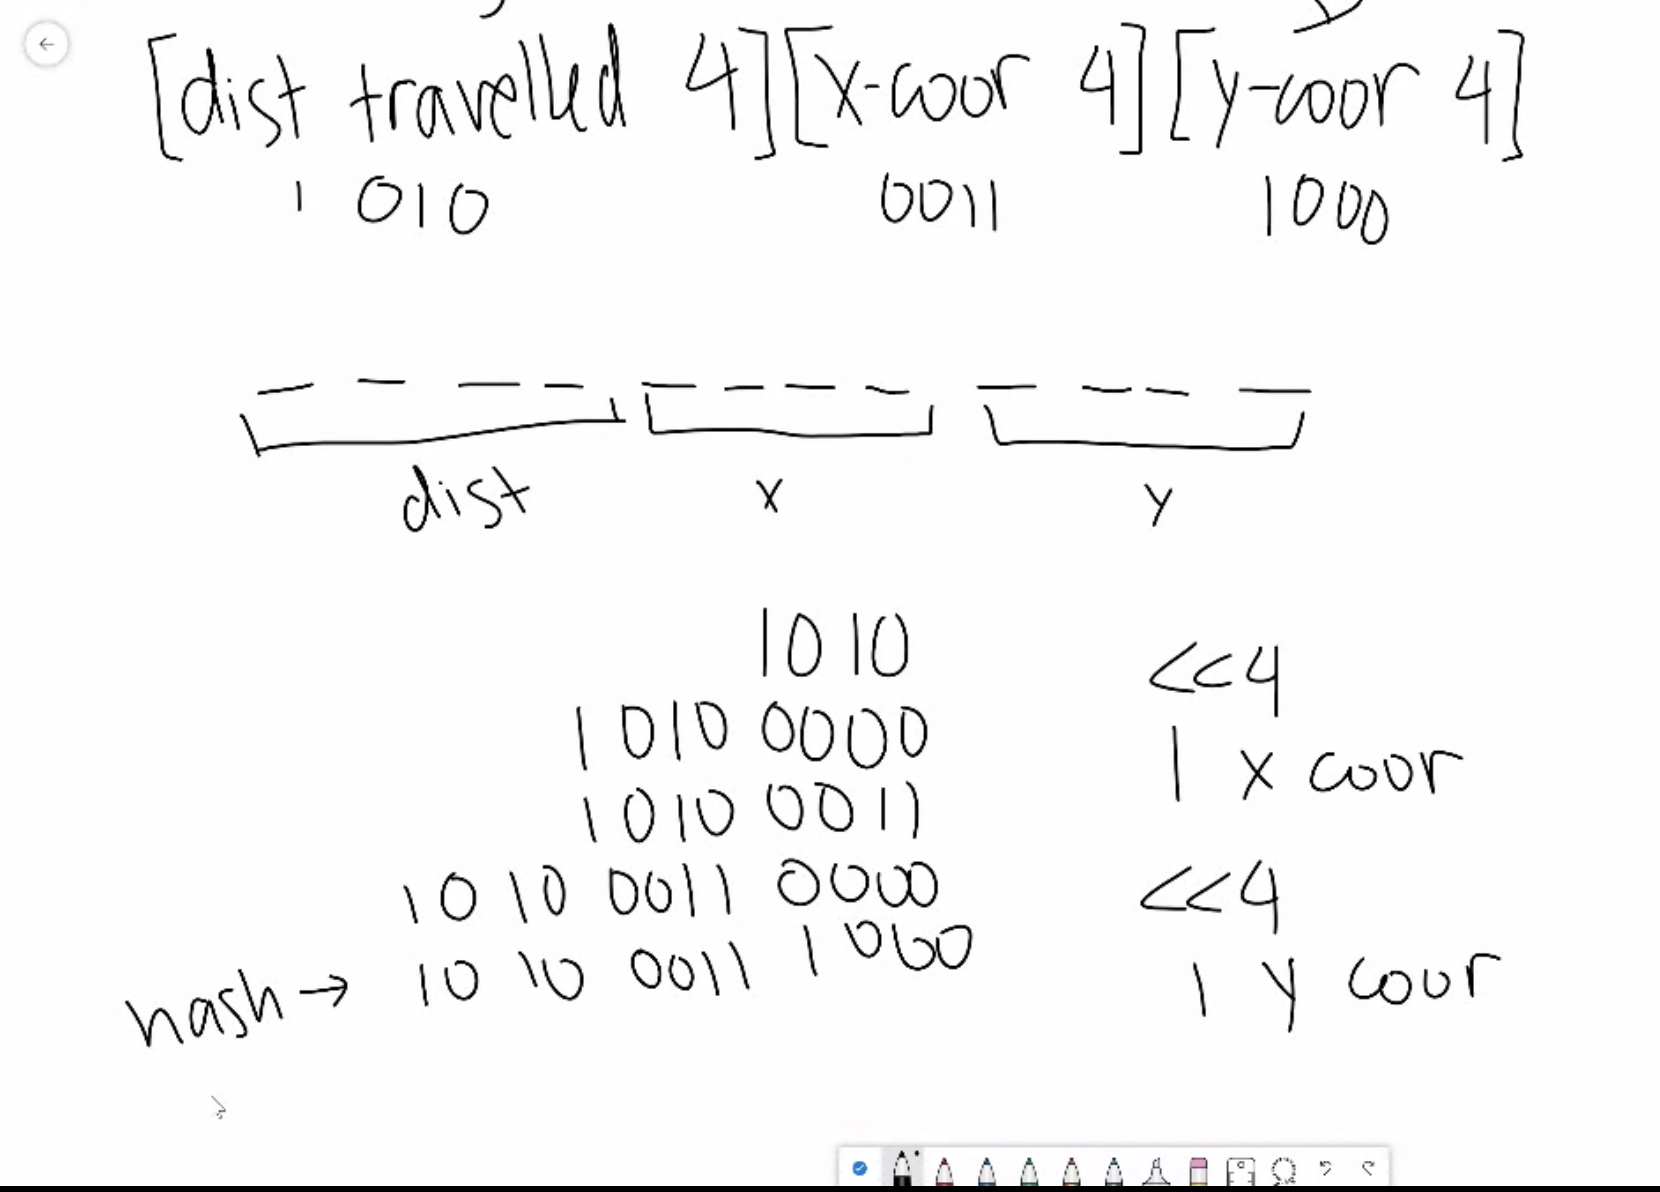 [dist travelled 4][x-coor 4][y-coor 4]
1010 0011 1000
dist x y
1010 <<4
1010 0000 | x coor
1010 0011
1010 0011 0000 <<4
hash → 1010 0011 1000 | y coor